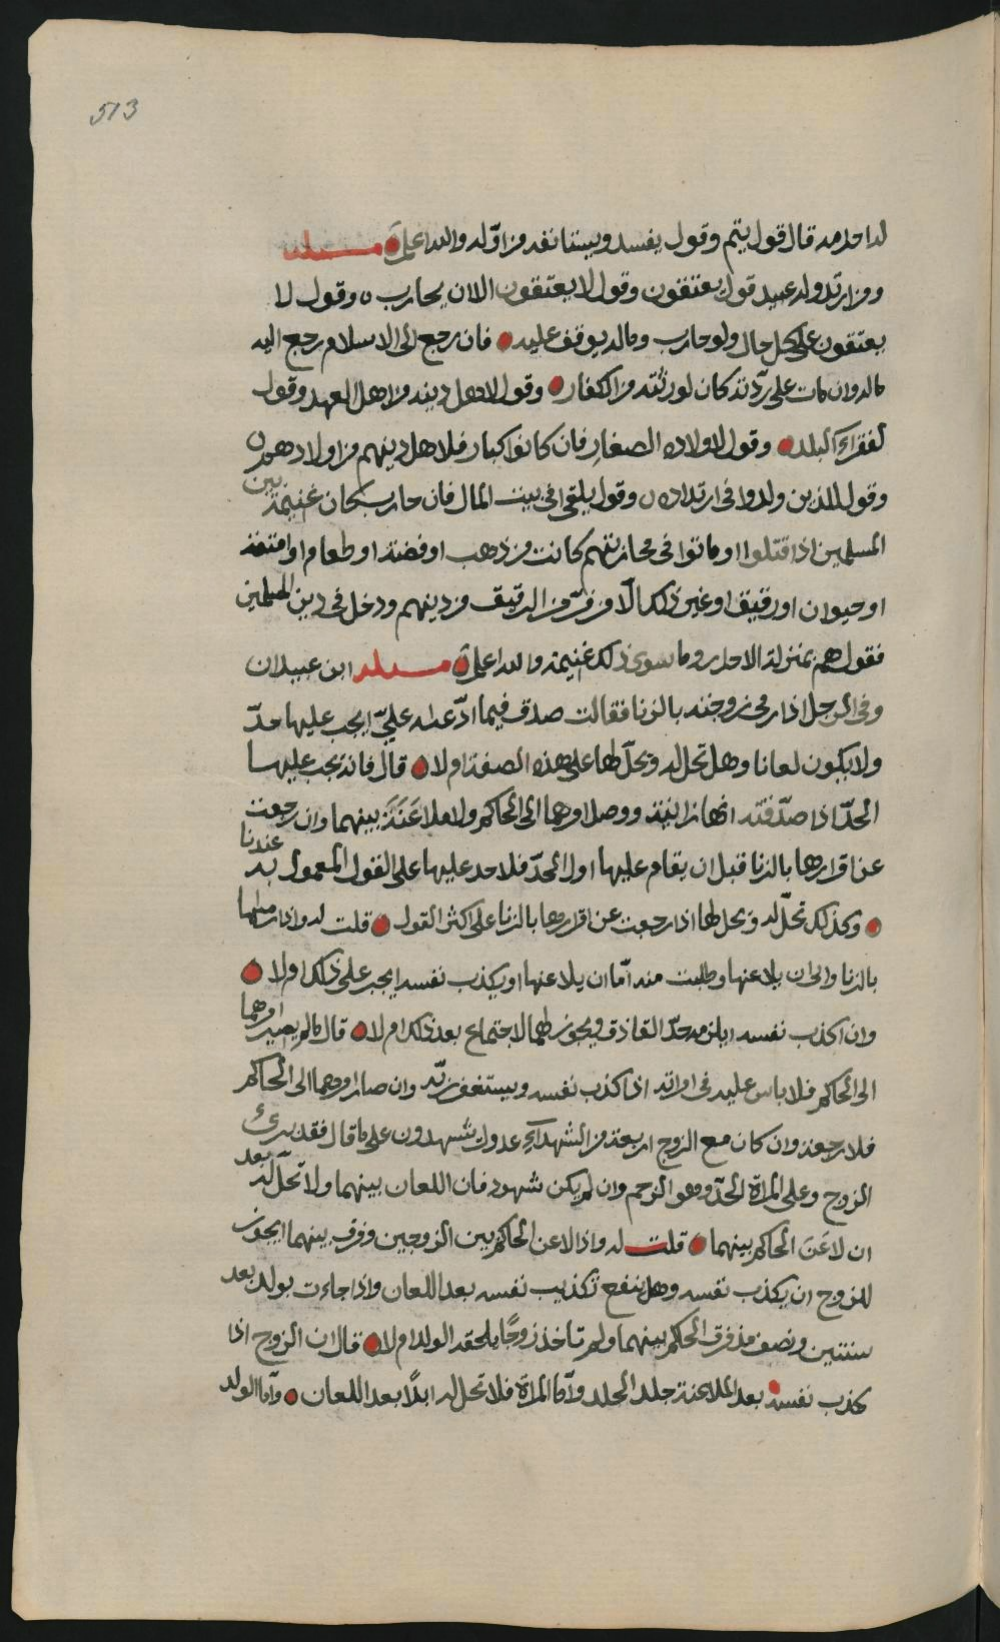 513
لداخدمه قال قول يتم وقول يفسد ويستانفه من اوله والله اعلم مسئلة
ومن ارتد وله عبيد قول يعتقون وقول لا يعتقون الا ان يحارب وقول لا
يعتقون على كل حال ولو حارب وماله يوقف عليه فان رجع الى الاسلام رجع اليه
ماله وان مات على ردته كان لورثته من الكفار وقول لاهل دينه من اهل العهد وقول
لفقراء البلد وقول لاولاده الصغار فان كانوا كبار فلاهل دينهم من اولادهم
وقول للذين ولدوا في ارتداده وقول يلقى في بيت المال فان حارب كان غنيمة بين
المسلمين اذا قتلوا او ماتوا في محاربتهم كانت من ذهب او فضة او طعام او امتعة
او حيوان او رقيق او غير ذلك الا من فر من الرقيق من دينهم ودخل في دين المسلمين
فقول هم بمنزلة الاحرار وما سوى ذلك غنيمة والله اعلم مسئلة ابن عبيدان
وفي الرجل اذا رمى زوجته بالزنا فقالت صدق فيما ادعاه علي ايجب عليها حد
ولا يكون لعانا وهل تحل له ويحل لها على هذه الصفة ام لا قال فانه يجب عليها
الحد اذا صدقته انها زانية ووصل امرهما الى الحاكم ولا ملاعنة بينهما وان رجعت
عن اقرارها بالزنا قبل ان يقام عليها اول الحد فلا حد عليها على القول المعمول به عندنا
وكذلك تحل له ويحل لها اذا رجعت عن اقرارها بالزنا على اكثر القول قلت له واذا رماها
بالزنا وابى ان يلاعنها وطلبت منه اما ان يلاعنها او يكذب نفسه ايجبر على ذلك ام لا
وان اكذب نفسه ايلزمه حد القاذف ويجوز لهما الاجتماع بعد ذلك ام لا قال ما لم يصير امرهما
الى الحاكم فلا باس عليه في امراته اذا كذب نفسه ويستغفر ربه وان صار امرهما الى الحاكم
فلا رجعة وان كان مع الزوج اربعة من الشهداء عدول يشهدون على ما قال فقد برئ
الزوج وعلى المراة الحد وهو الرجم وان لم يكن شهود فان اللعان بينهما ولا تحل له بعد
ان لاعن الحاكم بينهما قلت له واذا لاعن الحاكم بين الزوجين وفرق بينهما ايجوز
للزوج ان يكذب نفسه وهل ينفع تكذيب نفسه بعد اللعان واذا جاءت بولد بعد
سنتين ونصف مذ فرق الحاكم بينهما ولم تاخذ زوجا يلحقه الولد ام لا قال ان الزوج اذا
كذب نفسه بعد الملاعنة جلد الحد واما المراة فلا تحل له ابدا بعد اللعان واما الولد